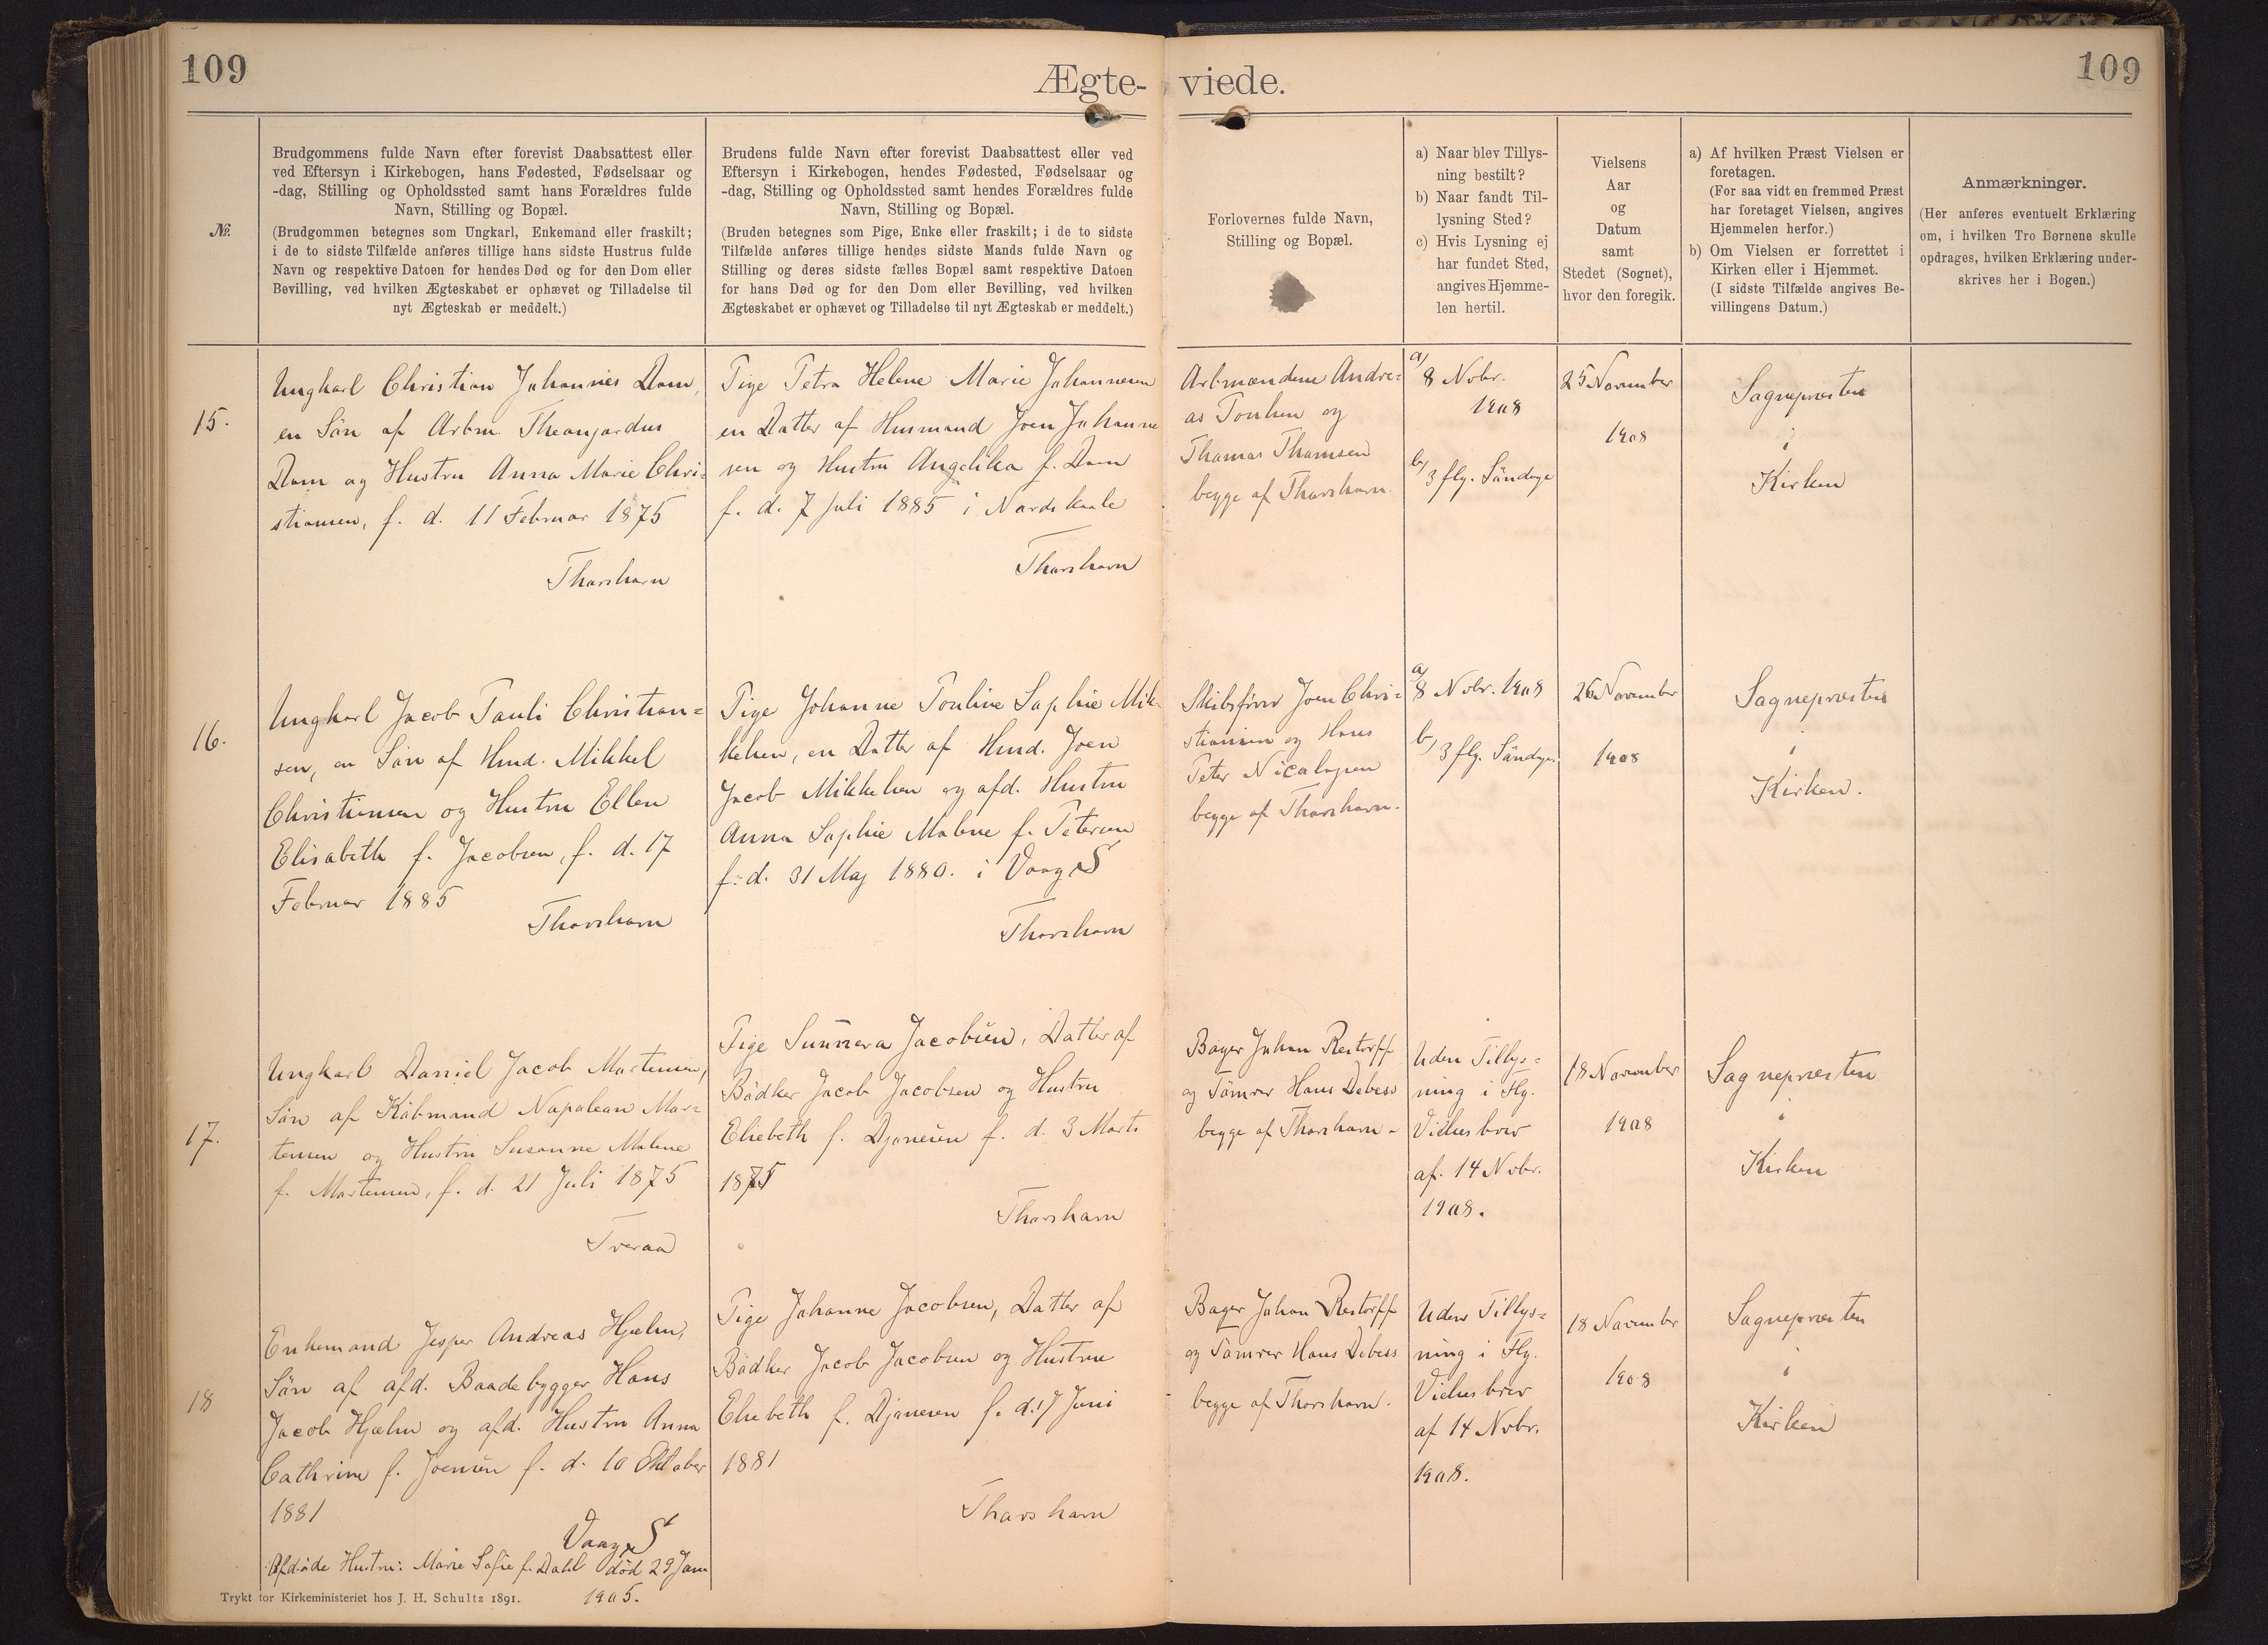 109
Ægte-
viede.
109
№.
Brudgommens fulde Navn efter forevist Daabsattest eller
ved Eftersyn i Kirkebogen, hans Fødested, Fødselsaar og
-dag, Stilling og Opholdssted samt hans Forældres fulde
Navn, Stilling og Bopæl.
(Brudgommen betegnes som Ungkarl, Enkemand eller fraskilt;
i de to sidste Tilfælde anføres tillige hans sidste Hustrus fulde
Navn og respektive Datoen for hendes Død og for den Dom eller
Bevilling, ved hvilken Ægteskabet er ophævet og Tilladelse til
nyt Ægteskab er meddelt.)
Brudens fulde Navn efter forevist Daabsattest eller ved
Eftersyn i Kirkebogen, hendes Fødested, Fødselsaar og
-dag, Stilling og Opholdssted samt hendes Forældres fulde
Navn, Stilling og Bopæl.
(Bruden betegnes som Pige, Enke eller fraskilt; i de to sidste
Tilfælde anføres tillige hendes sidste Mands fulde Navn og
Stilling og deres sidste fælles Bopæl samt respektive Datoen
for hans Død og for den Dom eller Bevilling, ved hvilken
Ægteskabet er ophævet og Tilladelse til nyt Ægteskab er meddelt.)
Forlovernes fulde Navn,
Stilling og Bopæl.
a) Naar blev Tillys-
ning bestilt?
b) Naar fandt Til-
lysning Sted?
c) Hvis Lysning ej
har fundet Sted,
angives Hjemme-
len hertil.
Vielsens
Aar
og
Datum
samt
Stedet (Sognet),
hvor den foregik.
a) Af hvilken Præst Vielsen er
foretagen.
(For saa vidt en fremmed Præst
har foretaget Vielsen, angives
Hjemmelen herfor.)
b) Om Vielsen er forrettet i
Kirken eller i Hjemmet.
(I sidste Tilfælde angives Be-
villingens Datum.)
Anmærkninger.
(Her anføres eventuelt Erklæring
om, i hvilken Tro Børnene skulle
opdrages, hvilken Erklæring under-
skrives her i Bogen.)
15.
Ungkarl Christian Johannes Dam,
en Søn af Arbm. Theangardus
Dam og Hustru Anna Marie Chri-
stiansen, f. d. 11 Februar 1875
Thorshavn
Pige Petra Helene Marie Johannesen
en Datter af Husmand Joen Johanne
sen og Hustru Angelika f. Dam
f. d. 7 Juli 1885 i Nordskaale
Thorshavn
Arbmændene Andre-
as Poulsen og
Thomas Thomsen
begge af Thorshavn.
a) 8 Nobr.
1908
b) 3 flg. Söndage
25 November
1908
Sognepræsten
i
Kirken
16.
Ungkarl Jacob Pauli Christian-
sen, en Søn af Hmd. Mikkel
Christiansen og Hustru Ellen
Elisabeth f. Jacobsen, f. d. 17
Februar 1885
Thorshavn
Pige Johanne Pouline Sophie Mik-
kelsen, en Datter af Hmd. Joen
Jacob Mikkelsen og afd. Hustru
Anna Sophie Malene f. Petersen
f. d. 31 Maj 1880. i Vaag S
Thorshavn
Skibsfører Joen Chri-
stiansen og Hans
Peter Nicolajsen
begge af Thorshavn.
a) 8 Nobr. 1908
b) 3 flg. Söndage
26 November
1908
Sognepræsten
i
Kirken.
17.
Ungkarl Daniel Jacob Mortensen,
Søn af Købmand Napoleon Mor-
tensen og Hustru Susanne Malene
f. Mortensen, f. d. 21 Juli 1875
Tveraa
Pige Sunneva Jacobsen, Datter af
Bødker Jacob Jacobsen og Hustru
Elsebeth f. Djonesen f. d. 3 Marts
1875
Thorshavn
Bager Johan Restorff
og Tømrer Hans Debess
begge af Thorshavn -
Uden Tillys-
ning i Flg.
Vielsesbrev
af. 14 Nobr.
1908.
18 November
1908
Sognepræsten
i
Kirken
18
Enkemand Jesper Andreas Hjelm,
Søn af afd. Baadebygger Hans
Jacob Hjelm og afd. Hustru Anna
Cathrine f. Joensen f. d. 10 Oktober
1881
Vaag S
Afdøde Hustru: Marie Sofie f. Dahl død 29 Janu
1905.
Pige Johanne Jacobsen, Datter af
Bødker Jacob Jacobsen og Hustru
Elsebeth f. Djonesen f. d. 17 Juni
1881
Thorshavn
Bager Johan Restorff
og Tømrer Hans Debess
begge af Thorshavn.
Uden Tillys-
ning i Flg.
Vielsesbrev
af 14 Nobr.
1908.
18 November
1908
Sognepræsten
i
Kirken
Trykt for Kirkeministeriet hos J. H. Schultz 1891.